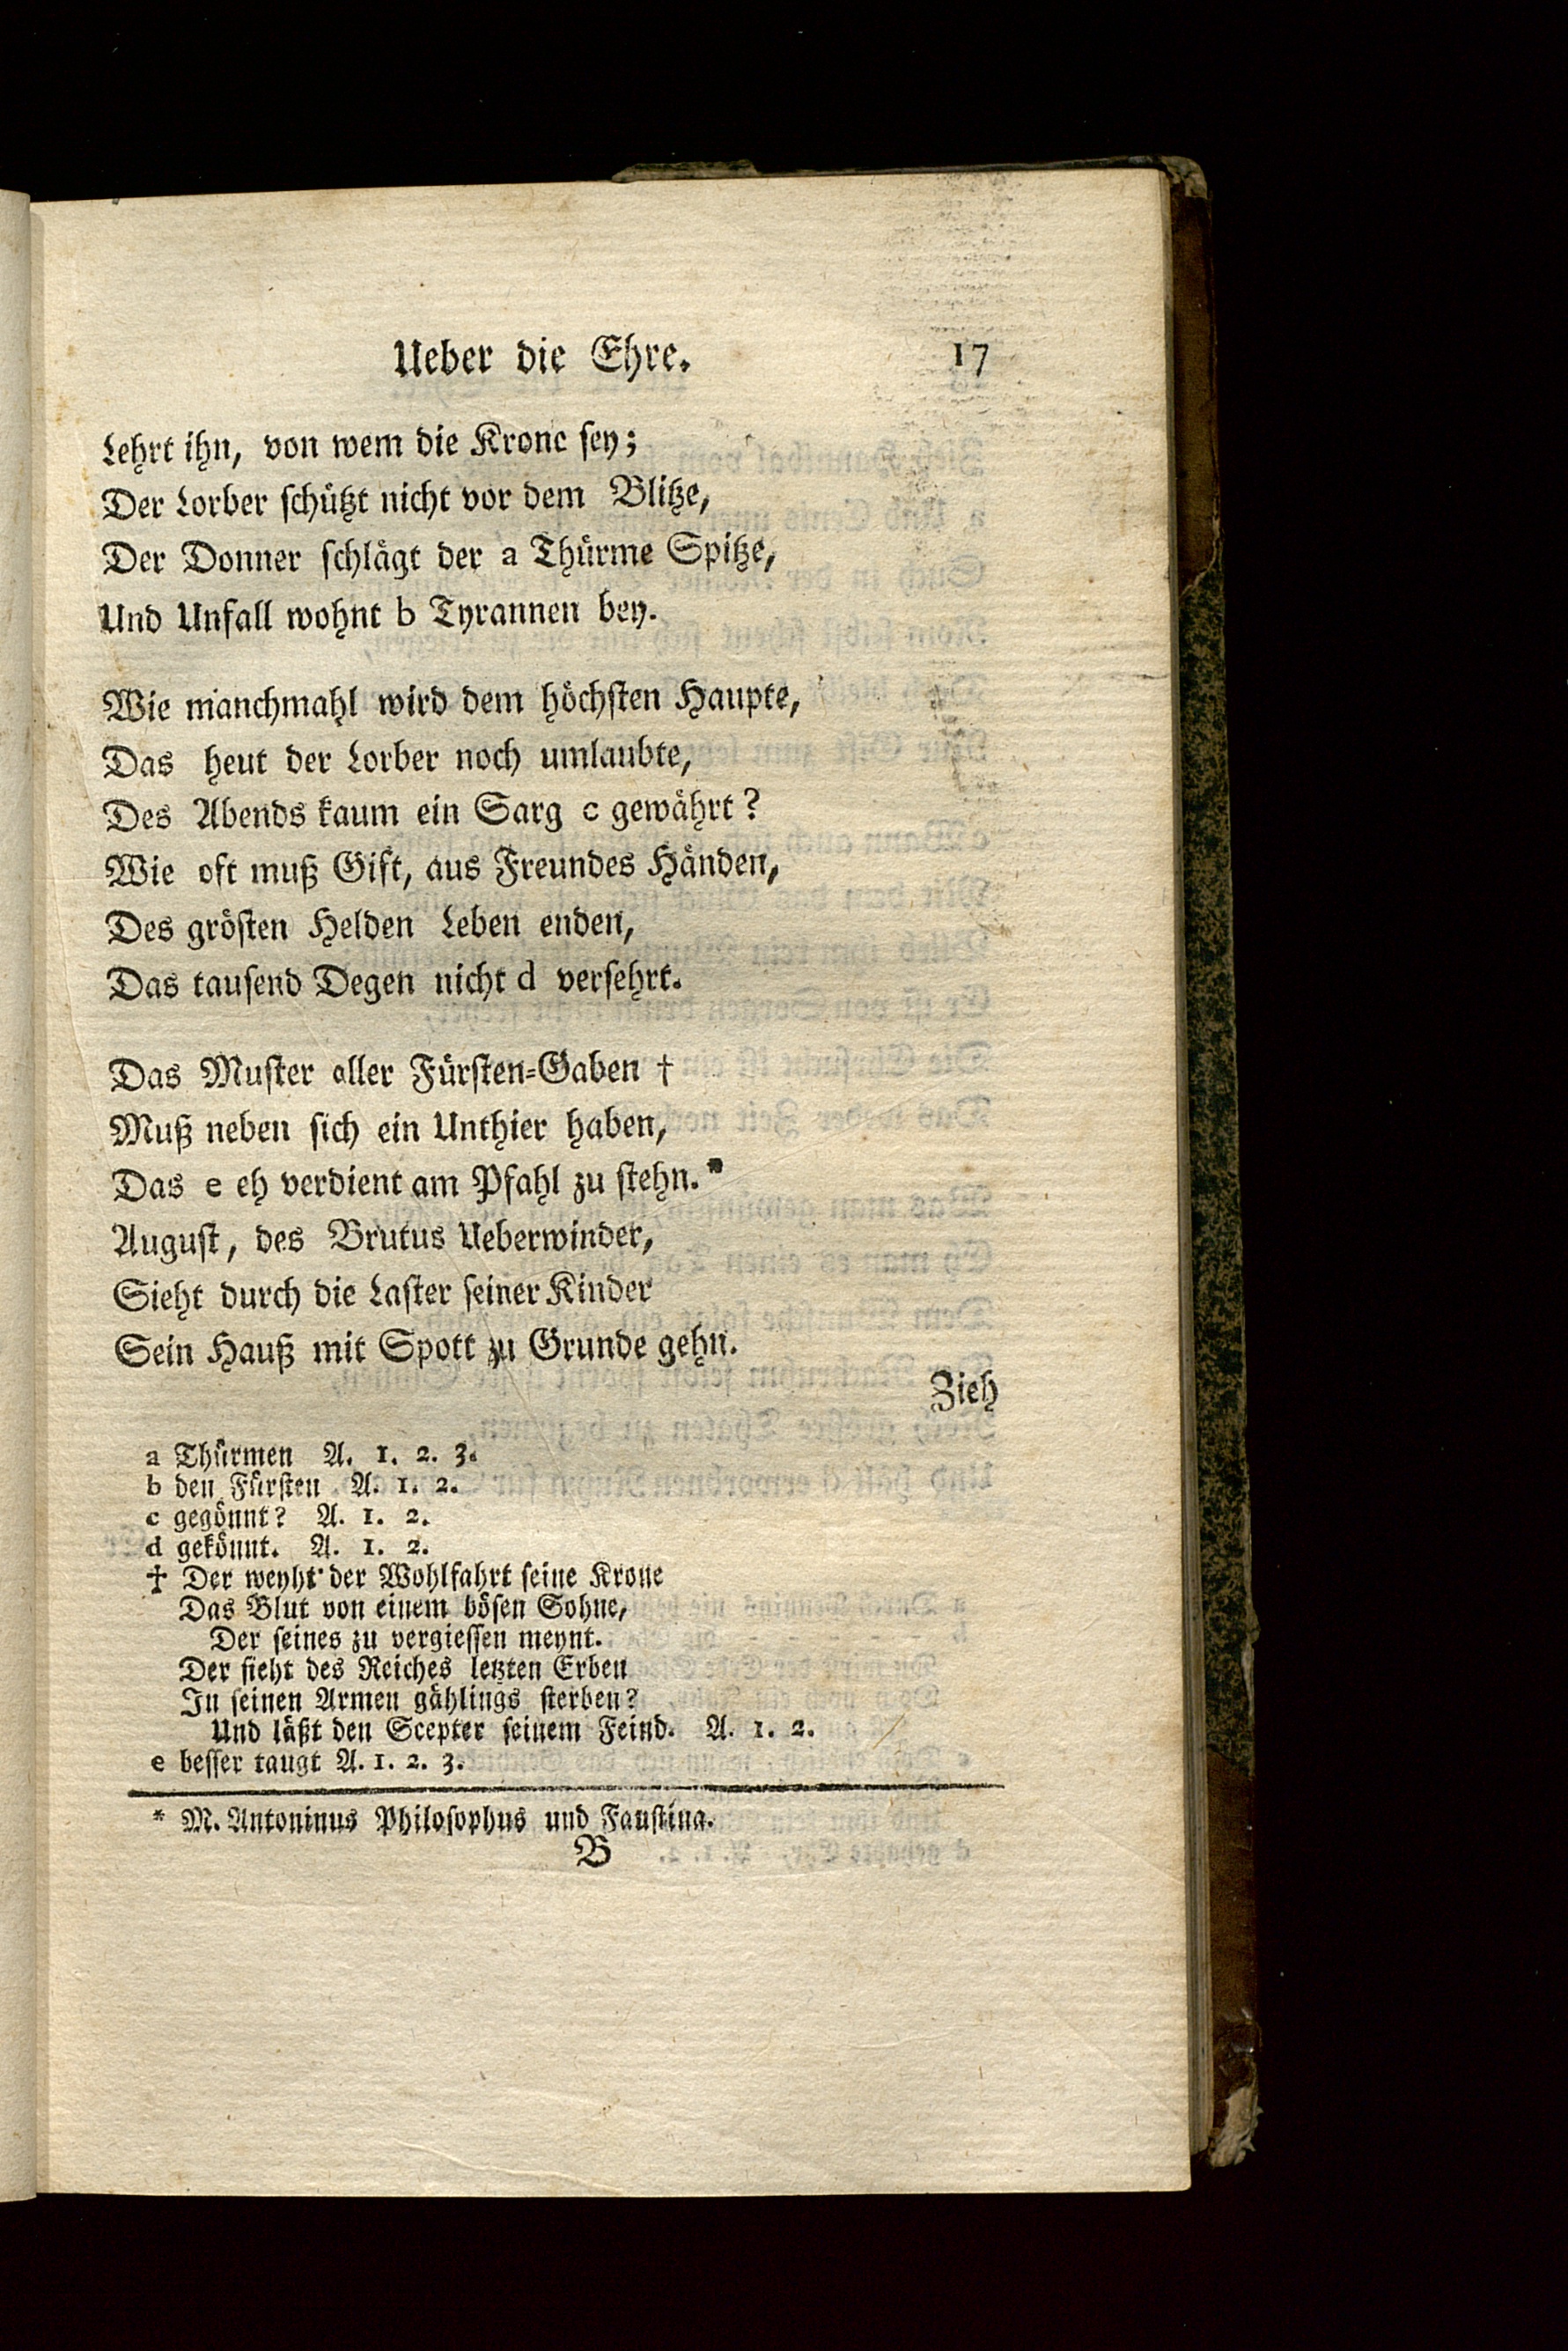 Ueber die Ehre. 17
Lehrt ihn, von wem die Krone sey;
Der Lorber schützt nicht vor dem Blitze,
Der Donner schlägt der a Thürme Spitze,
Und Unfall wohnt b Tyrannen bey.
Wie manchmahl wird dem höchsten Haupte,
Das heut der Lorber noch umlaubte,
Des Abends kaum ein Sarg c gewährt?
Wie oft muß Gift, aus Freundes Händen,
Des grösten Helden Leben enden,
Das tausend Degen nicht d versehrt.
Das Muster aller Fürsten-Gaben †
Muß neben sich ein Unthier haben,
Das e eh verdient am Pfahl zu stehn.*
August, des Brutus Ueberwinder,
Sieht durch die Laster seiner Kinder
Sein Hauß mit Spott zu Grunde gehn.
Zieh
a Thürmen A. 1. 2. 3.
b den Fürsten A. 1. 2.
c gegönnt? A. 1. 2.
d gekönnt. A. 1. 2.
† Der weyht der Wohlfahrt seine Krone
Das Blut von einem bösen Sohne,
Der seines zu vergiessen meynt.
Der sieht des Reiches letzten Erben
In seinen Armen gählings sterben?
Und läßt den Scepter seinem Feind. A. 1. 2.
e besser taugt A. 1. 2. 3.
* M. Antoninus Philosophus und Faustina.
B